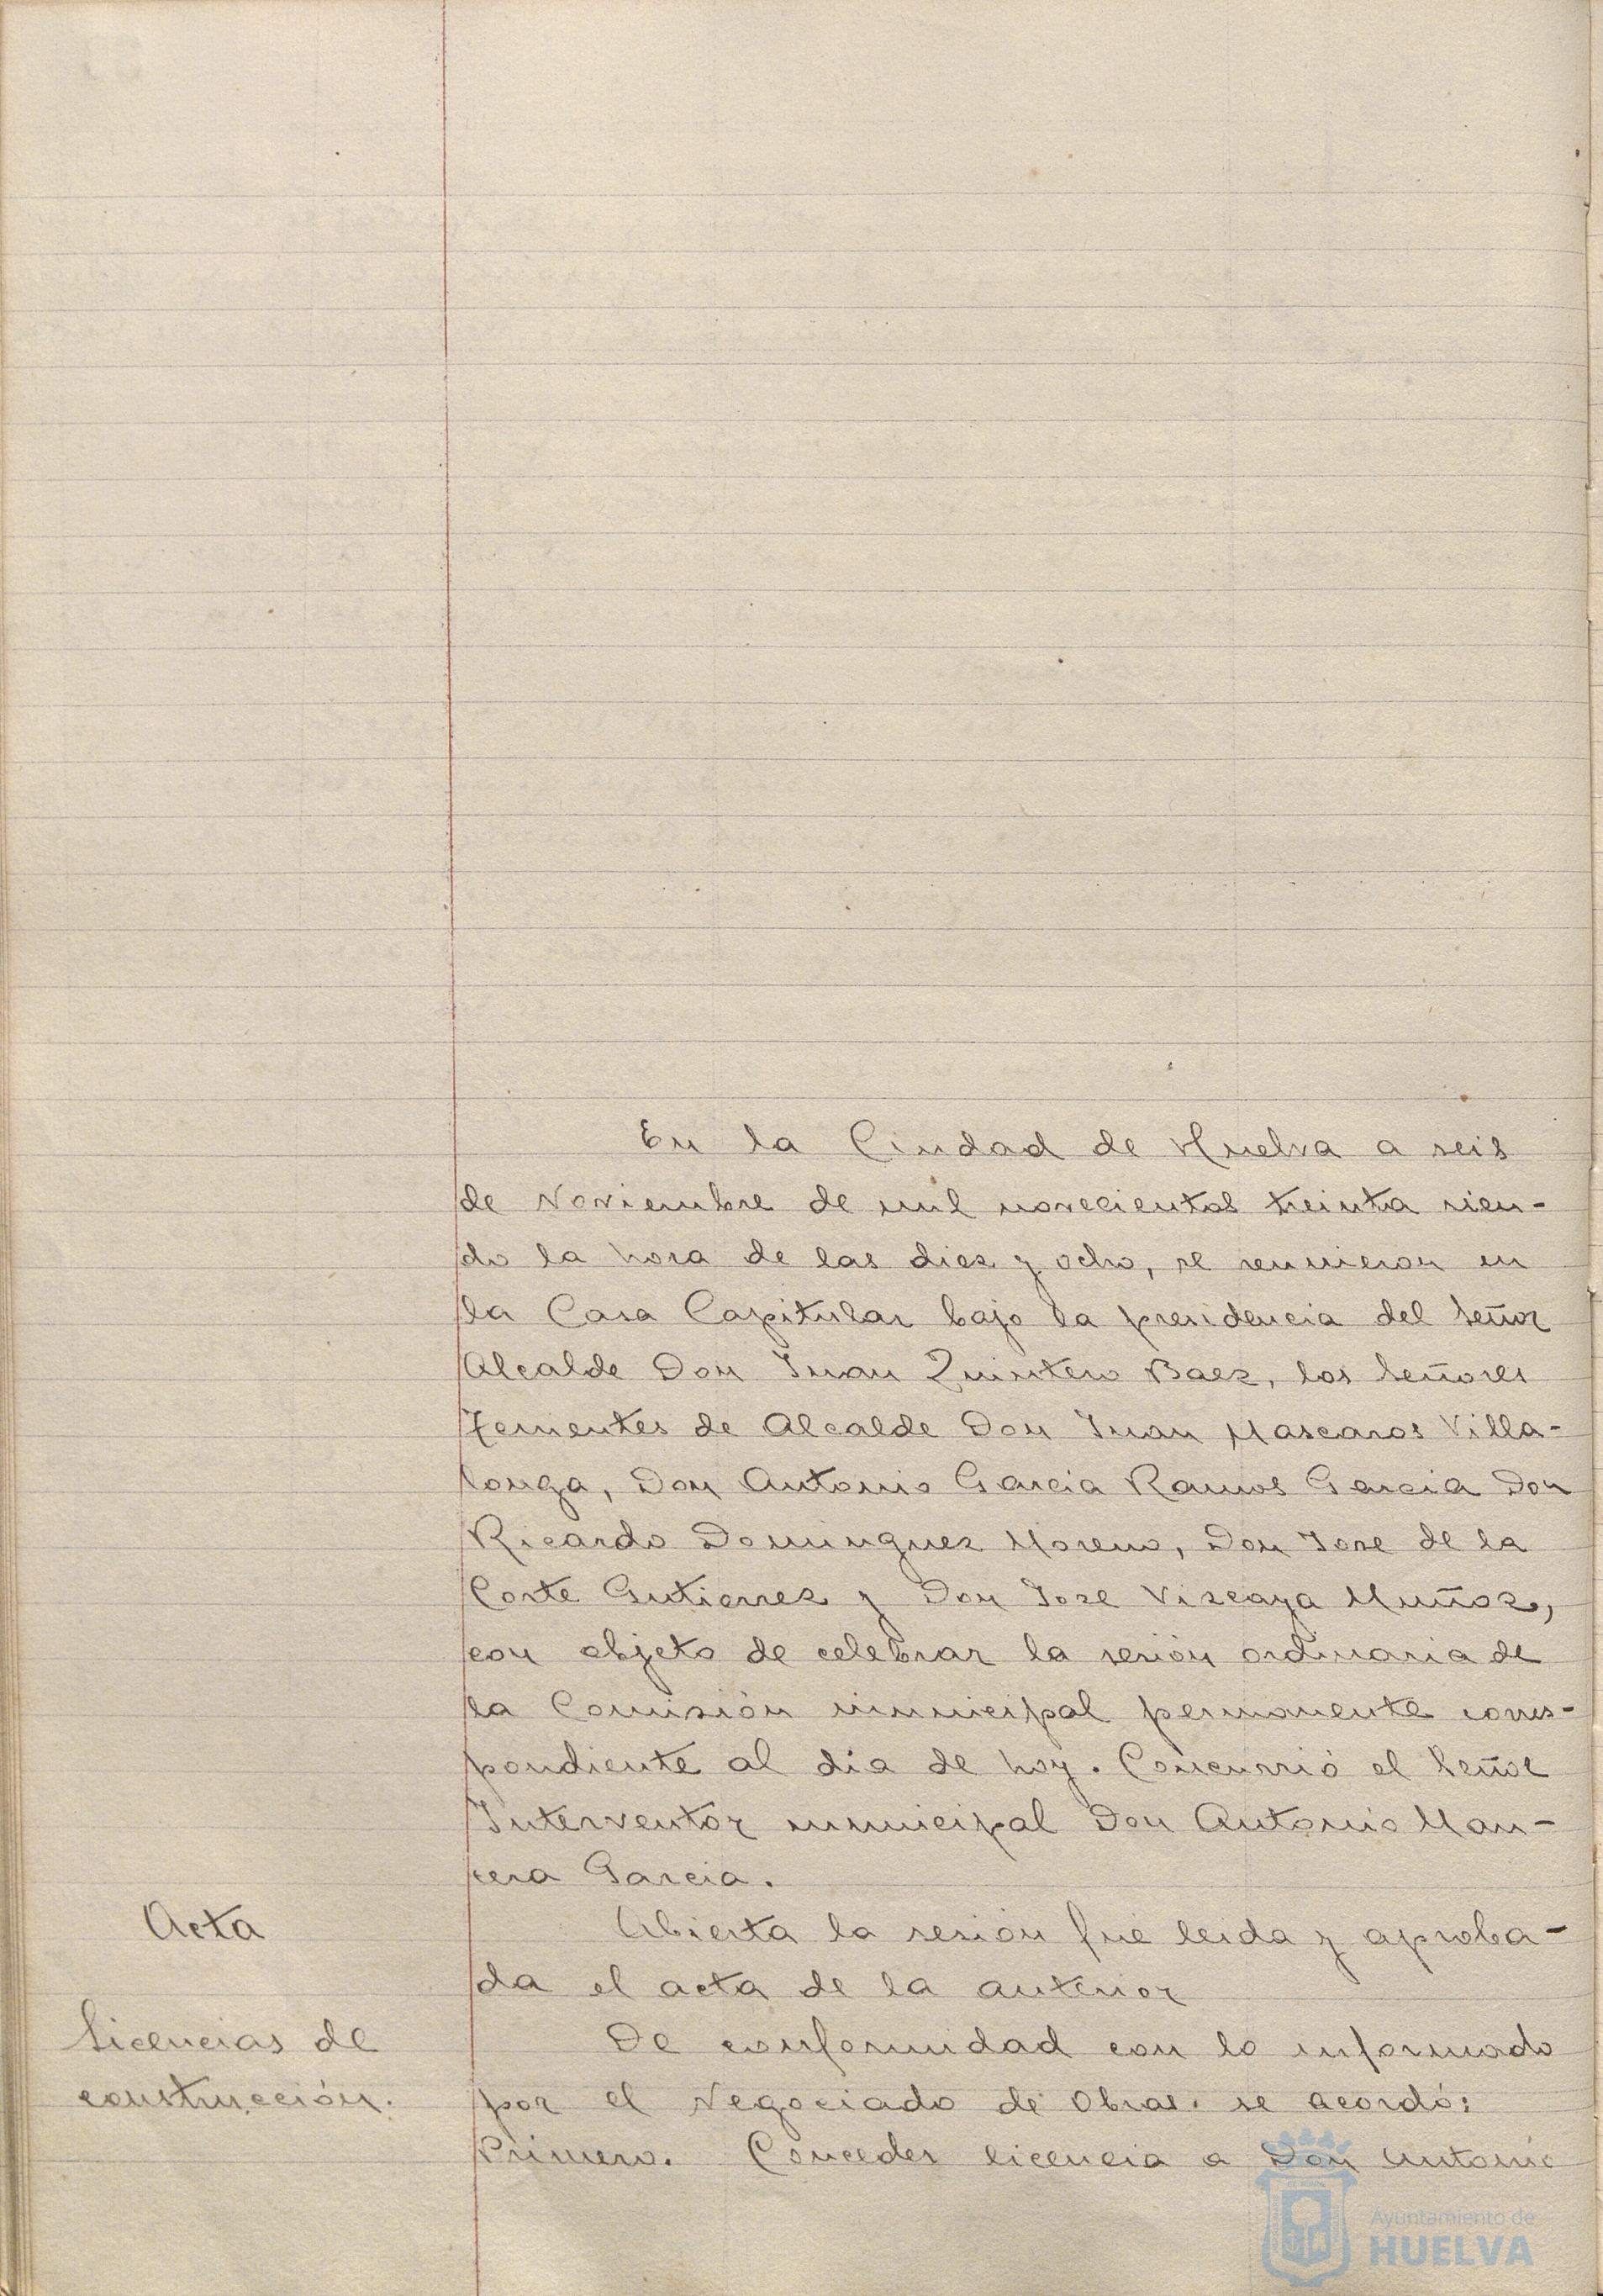 En la Ciudad de Huelva a seis
de Noviembre de mil novecientos treinta sien-
do la hora de las diez y ocho, se reunieron en
la Casa Capitular bajo la presidencia del Señor
Alcalde Don Juan Quintero Baez, los Señores
Tenientes de Alcalde Don Juan Mascaros Villa-
longa, Don Antonio Garcia Ramos Garcia Don
Ricardo Dominguez Moreno, Don Jose de la
Corte Gutierrez y Don Jose Viscaya Muñoz,
con objeto de celebrar la sesión ordinaria de
la Comisión municipal permanente corres-
pondiente al día de hoy. Concurrió el Señor
Interventor municipal Don Antonio Man-
cera Garcia.
Acta
Abierta la sesión fué leida y aproba-
da el acta de la anterior
Licencias de
construcción.
De conformidad con lo informado
por el Negociado de Obras. se acordó:
Primero. Conceder licencia a Don Antonio
Ayuntamiento de
HUELVA